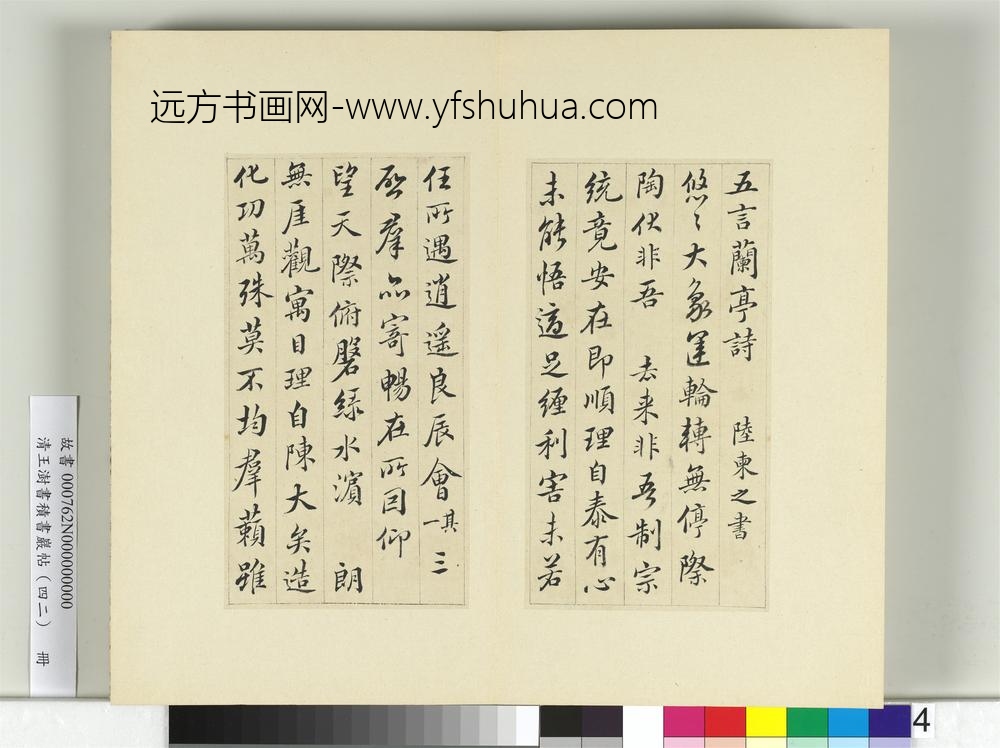 远方书画网-www.yfshuhua.com
五言蘭亭詩 陸柬之書
悠〻大象運輪轉無停際
陶伏非吾 去来非吾制宗
統竟安在即順理自泰有心
未能悟適足纏利害未若
任所遇逍遥良辰會其一 三
啓羣品寄暢在所因仰
望天際俯磐緑水濱 朗
無厓觀寓目理自陳大矣造
化功萬殊莫不均羣籟雖
故書 000762N000000000
清王澍書積書巖帖（四二） 冊
4